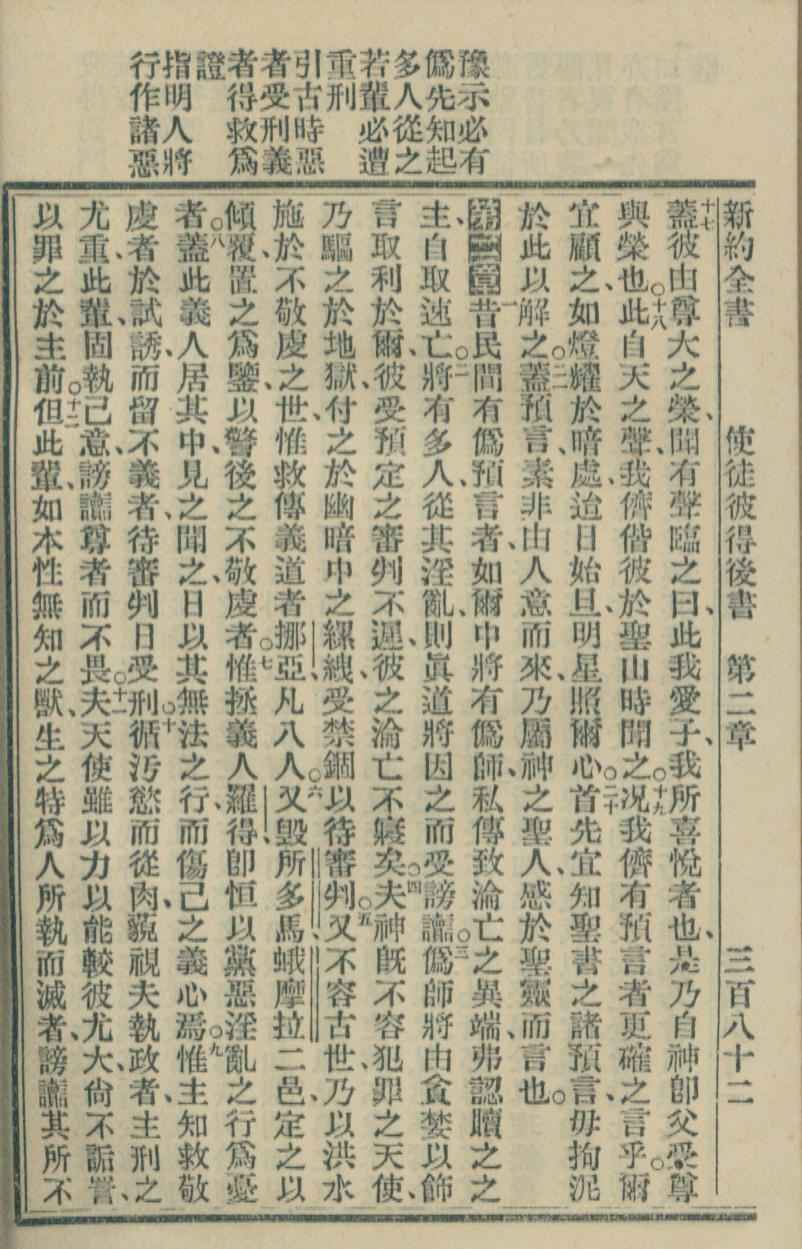 豫示必有
僞先知起
多人從之
若輩必遭
重刑
引古時惡
者受刑義
者得救爲
證
指明人將
行作諸惡
新約全書 使徒彼得後書 第二章 三百八十二
十七蓋彼由尊大之榮、聞有聲臨之曰、此我愛子、我所喜悅者也、是乃自神卽父受尊
與榮也。十八此自天之聲、我儕偕彼於聖山時聞之。十九况我儕有預言者更確之言乎。爾
宜顧之、如燈耀於暗處、迨日始旦、明星照爾心。二十首先宜知聖書之諸預言、毋拘泥
於此以解之。二一蓋預言素非由人意而來、乃屬神之聖人、感於聖靈而言也。
第二章 一昔民間有僞預言者、如爾中將有僞師、私傳致淪亡之異端、弗認贖之之
主、自取速亡。二將有多人從其淫亂、則眞道將因之而受謗讟。三僞師將由貪婪以飾
言取利於爾、彼受預定之審判不遲、彼之淪亡不寢矣。四夫神旣不容犯罪之天使、
乃驅之於地獄、付之於幽暗中之縲絏、受禁錮以待審判。五又不容古世、乃以洪水
施於不敬虔之世、惟救傳義道者挪亞凡八人。六又毀所多馬蛾摩拉二邑、定之以
傾覆、置之爲鑒、以警後之不敬虔者。七惟拯義人羅得、卽恒以黨惡淫亂之行爲憂
者。八蓋此義人居其中、見之聞之、日以其無法之行、而傷己之義心焉。九惟主知救敬
虔者於試誘、而留不義者、待審判日受刑。十循汚慾而從肉、藐視夫執政者、主刑之
尤重、此輩固執己意、謗讟尊者而不畏。十一夫天使雖以力以能較彼尤大、尙不詬詈、
以罪之於主前。十二但此輩、如本性無知之獸、生之特爲人所執而滅者、謗讟其所不